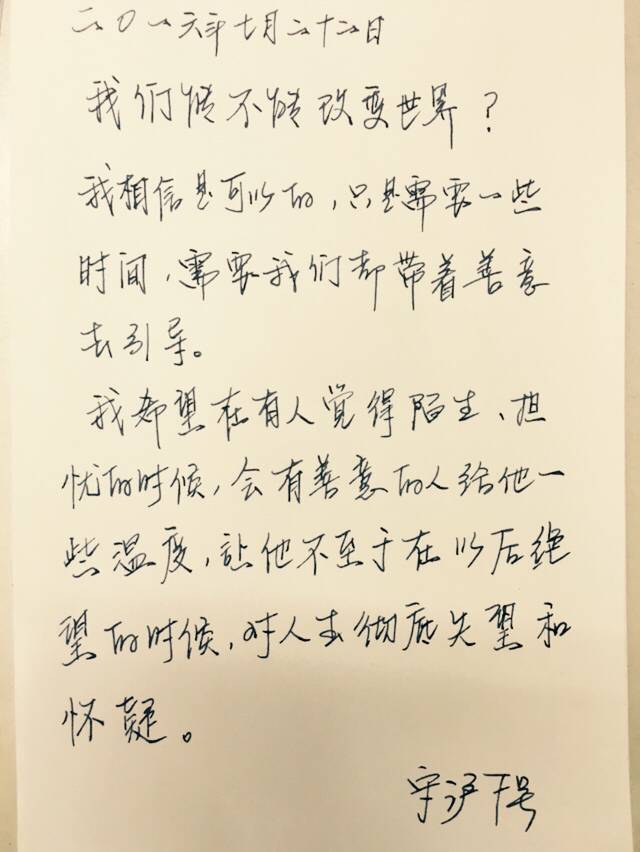 二〇一六年七月二十二日
我们能不能改变世界？
我相信是可以的，只是需要一些
时间，需要我们都带着善意
去引导。
我希望在有人觉得陌生、担
忧的时候，会有善意的人给他一
些温度，让他不至于在以后绝
望的时候，对人生彻底失望和
怀疑。
守沪